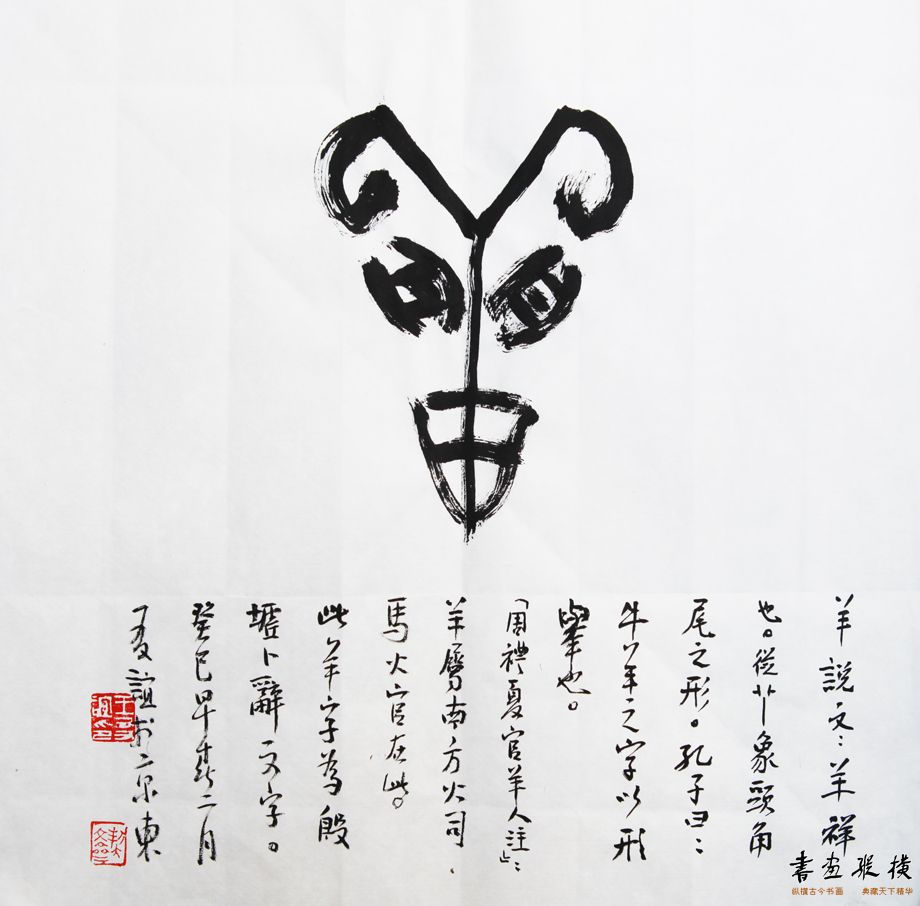 羊說文：羊祥
也。從艹象頭角
尾之形。孔子曰：
牛羊之字以形
舉也。
「周禮夏官羊人注」：
羊屬南方火司
馬火官在此。
此羊字為殷
墟卜辭文字。
癸巳早春二月
友誼於京東
書畫縱橫
纵横古今书画 典藏天下精华